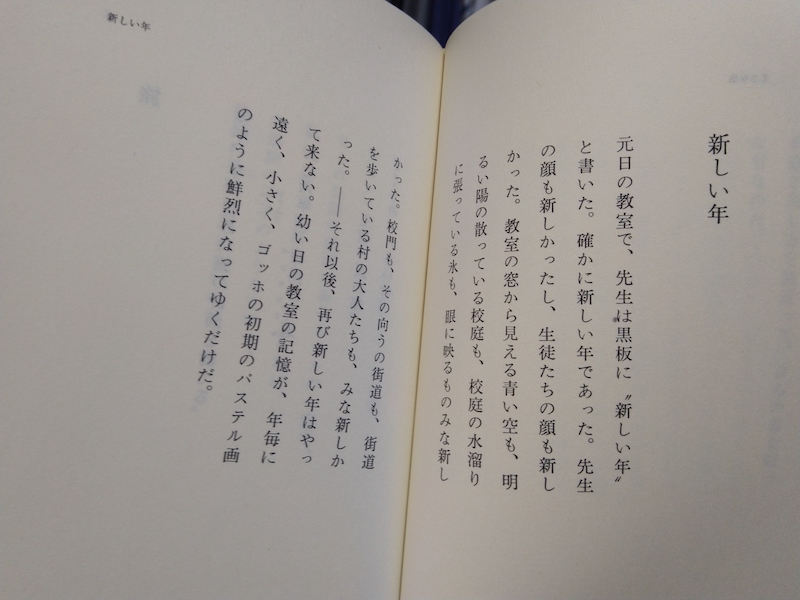 新しい年
元日の教室で、先生は黒板に〝新しい年〟
と書いた。確かに新しい年であった。先生
の顔も新しかったし、生徒たちの顔も新し
かった。教室の窓から見える青い空も、明
るい陽の散っている校庭も、校庭の水溜り
に張っている氷も、眼に映るものみな新し
新しい年
かった。校門も、その向うの街道も、街道
を歩いている村の大人たちも、みな新しか
った。――それ以後、再び新しい年はやっ
て来ない。幼い日の教室の記憶が、年毎に
遠く、小さく、ゴッホの初期のパステル画
のように鮮烈になってゆくだけだ。